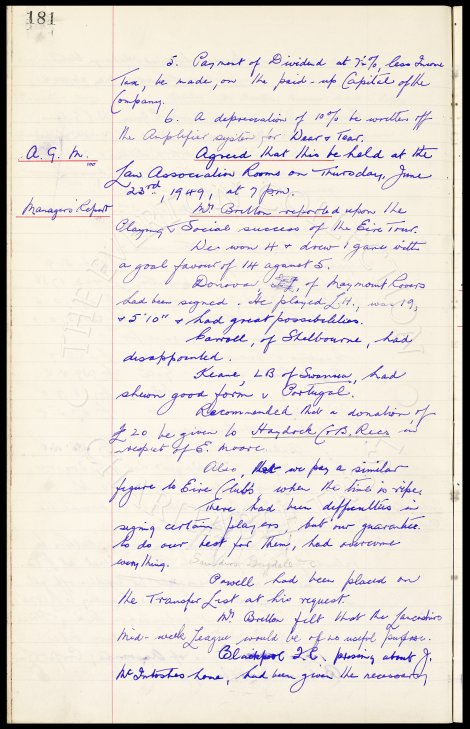 181
5. Payment of Dividend at 7½%, less Income
Tax, be made, on the paid-up Capital of the
Company.
6. A depreciation of 10% be written off
the Amplifier system for Wear & Tear.
A. G. M.
Agreed that this be held at the
Law Association Rooms on Thursday, June
23rd, 1949, at 7 pm.
Managers Report
Mr Britton reported upon the
Playing & Social success of the Eire Tour.
We won 4 & drew 1 game with
a goal favour of 14 against 5.
Donovan, of Maymount Rovers
had been signed. He played L.H., was 19,
& 5'10" & had great possibilities.
Carroll, of Shelbourne, had
disappointed.
Keane, LB of Swansea, had
shewn good form v Portugal.
Recommended that a donation of
£20 be given to Haydock C & B. Recs in
respect of E. Moore.
Also, that we pay a similar
figure to Eire Clubs when the time is ripe.
There had been difficulties in
signing certain players, but our guarantee
to do our best for them, had overcome
everything.
Powell had been placed on
the Transfer List at his request.
Mr Britton felt that the Lancashire
Mid-week League would be of no useful purpose.
Blackpool F.C. pressing about J.
McIntoshes home, had been given the necessary